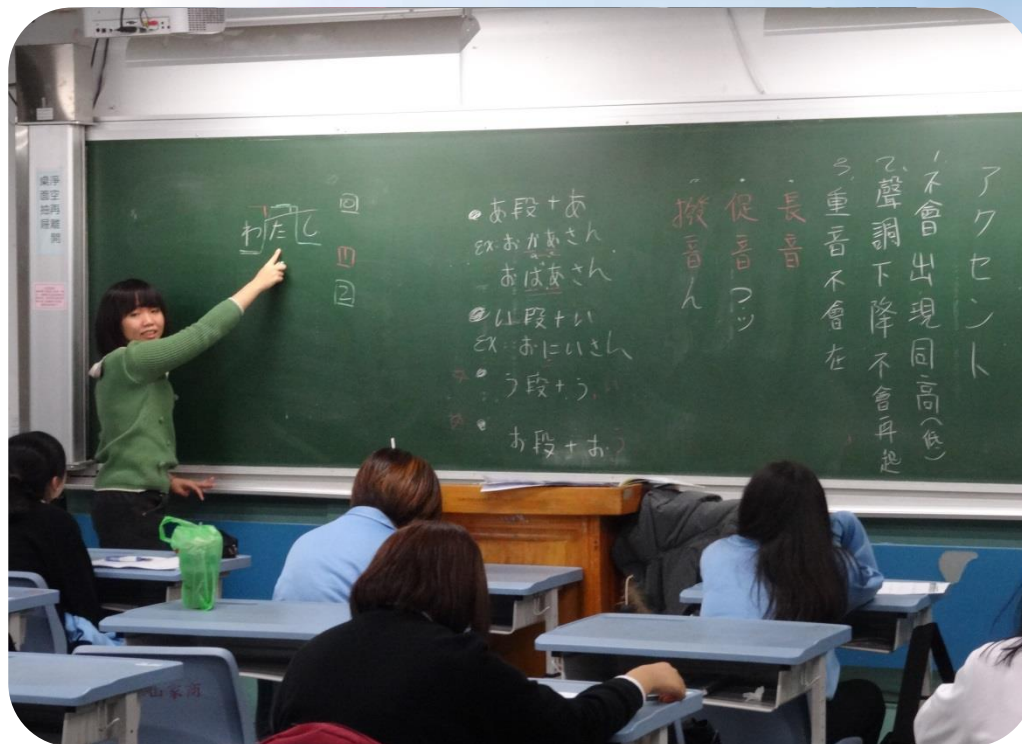 アクセント
1.不會出現同高(低)
2.聲調下降不會再起
3.重音不會在
・長音
・促音つッ
・撥音ん
・あ段+あ
ex:おかあさん
おばあさん
・い段+い
ex:おにいさん
・う段+う
・
お段+おう
0
1
2
わたし
桌面抽屜
淨空再離開
山家商